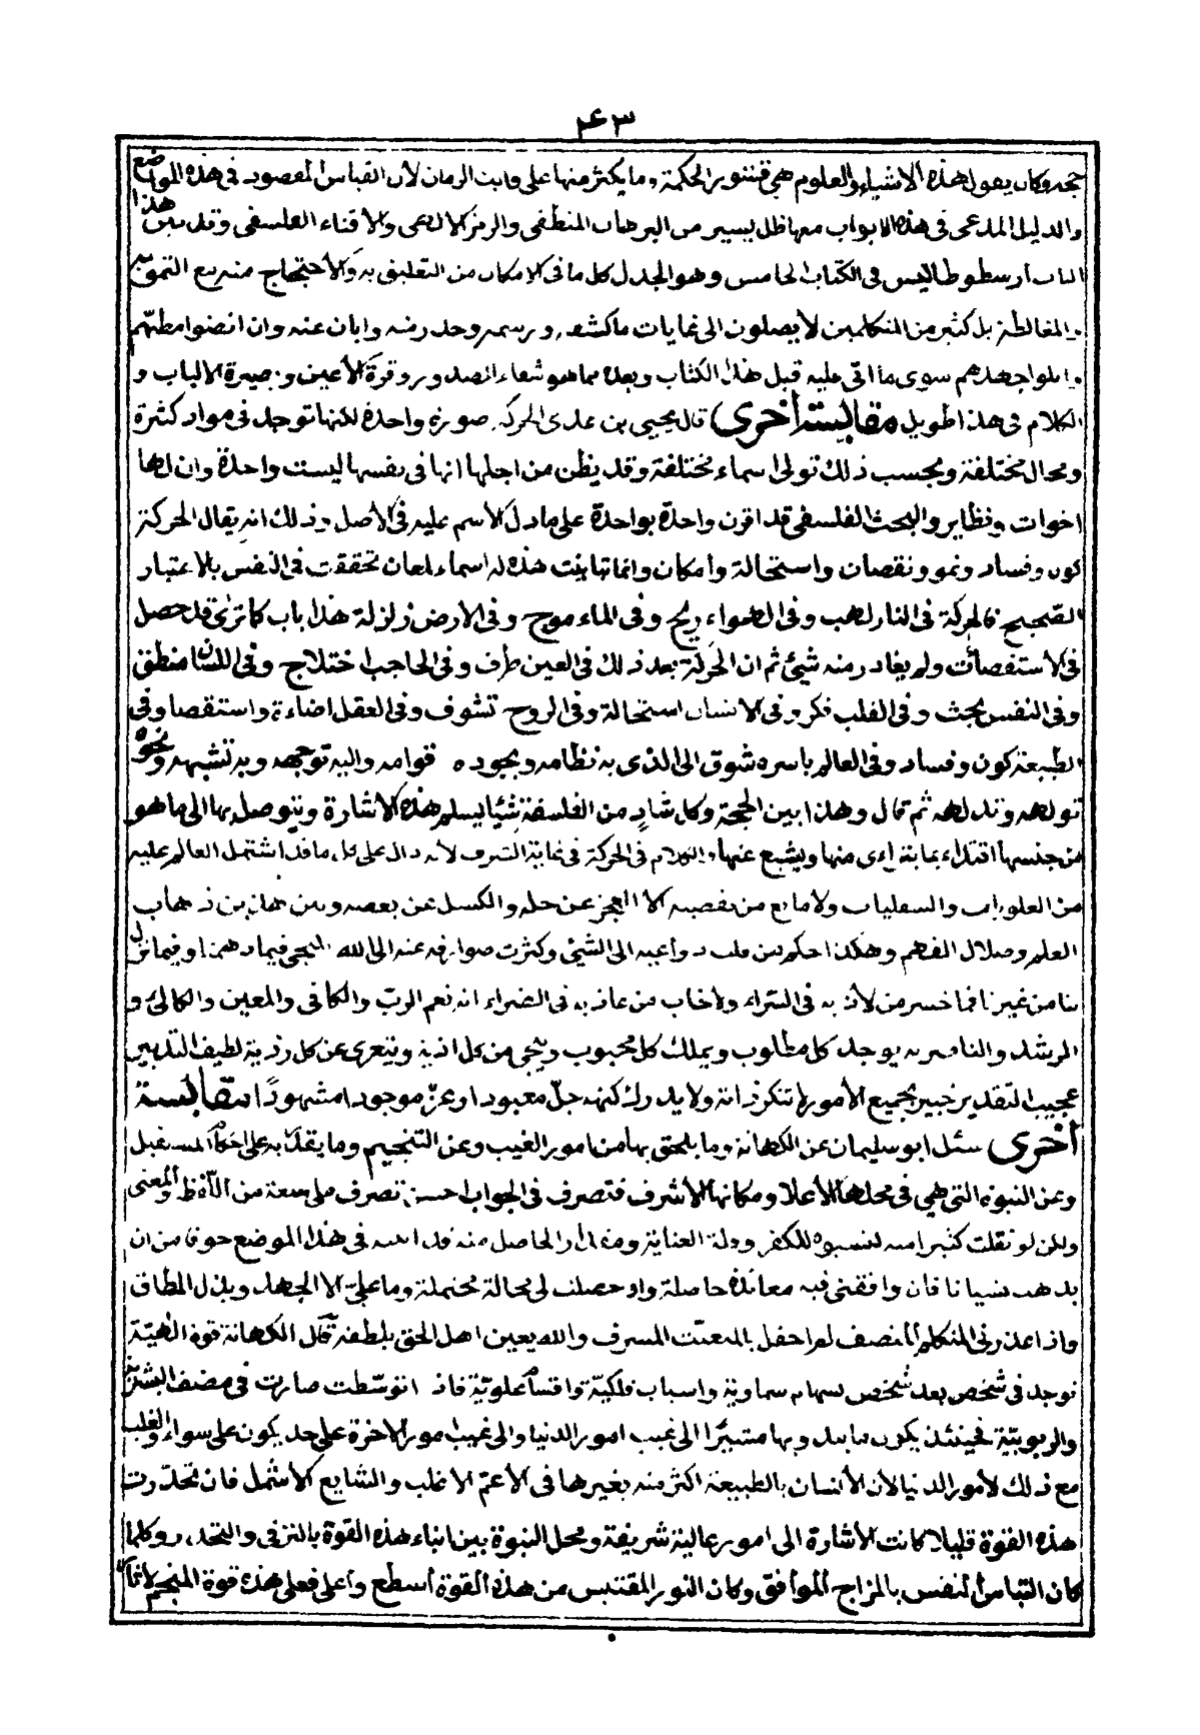 ٤٣
حجه وكان يقول هذه الاشياء والعلوم هي قشور الحكمة وما يكثر منها على فايت الزمان لأن القياس المقصود في هذه المواضع
والدليل المدعى في هذه الابواب معها ظل يسير من البرهان المنطقى والرمز الالهى والاقناع الفلسفى وقد بين هذا
الباب ارسطوطاليس فى الكتاب الخامس وهو الجدل كل ما فى الامكان من التعليق به والأحتجاج منه مع التمويه
والمغالطة بل كثير من المتكلمين لا يصلون الى غايات ما كشفه ورسمه وحذر منه وابان عنه وان انضوا مطيّهم
وابلوا جهدهم سوى ما اتى عليه قبل هذا الكتاب وبعده مما هو شفاء الصدور وقرة الأعين وبصيرة الالباب و
الكلام فى هذا طويل مقابسة أخرى قال يحيى بن عدى الحركة صورة واحدة لكنها توجد فى مواد كثيرة
ومحال مختلفة وبحسب ذلك تولى اسماء مختلفة وقد يظن من اجلها انها فى نفسها ليست واحدة وان لها
اخوات ونظاير والبحث الفلسفى قد اقرن واحدة بواحدة على ما دل الأسم عليه فى الأصل وذلك انه يقال الحركة
كون وفساد ونمو ونقصان واستحالة وامكان وانما تباينت هذه له اسماء لمعان تحققت فى النفس بالاعتبار
الصحيح فالحركة فى النار لهب وفى الهواء ريح وفى الماء موج وفى الارض زلزلة هذا باب كما ترى قد حصل
فى الاستقصات ولم يغادر منه شيئ ثم ان الحركة بعد ذلك فى العين طرف وفى الحاجب اختلاج وفى اللسان منطق
وفى النفس بحث وفى القلب فكر وفى الانسان استحالة وفى الروح تشوف وفى العقل اضاءة واستقصا وفى
الطبيعة كون وفساد وفى العالم باسره شوق الى الذى به نظامه وبجوده قوامه واليه توجهه وبه تشبهه ونحوه
تولهه وتدلهه ثم قال وهذا بين الحجة وكل شادٍ من الفلسفة شيئا يسلم هذه الاشارة ويتوصل بها الى ما هو
من جنسها اقتداء بما يتراءى منها ويشبع عنها والكلام فى الحركة فى غاية الشرف لأنه دال على كل ما قد اشتمل العالم عليه
من العلويات والسفليات ولا مانع من تقصيه الا العجز عن حله والكسل عن بعضه وبين هذين ذهاب
العلم وضلال الفهم وهكذا حكم من قلت دواعيه الى الشيئ وكثرت صوارفه عنه الى الله نلتجى فيما دهمنا وفيما نزل
بنا من غيرنا فما خسر من لاذ به فى السّراء ولا خاب من عاذ به فى الضراء انه نعم الربّ والكافى والمعين والكالئ و
المرشد والناصر به يوجد كل مطلوب ويملك كل محبوب وينجى من كل اذية ويتعرى عن كل رزية لطيف التدبير
عجيب التقدير خبير بجميع الأمور لا تنكر ذاته ولا يدرك كنهه جلّ معبودا وعزّ موجودا مشهودًا مقابسة
أخرى سئل ابو سليمان عن الكهانة وما يلحق بها من امور الغيب وعن التنجيم وما يقدّ به على احكام المستقبل
وعن النبوة التى هي فى محلها الأعلا ومكانها الأشرف فتصرف فى الجواب احسن تصرف على سعة من اللّفظ والمعنى
ولكن لو نقلت كثيرا منه لنسبوه للكفر وقلة العناية ومقدار الحاصل منه قد اثبته فى هذا الموضع خوفا من ان
يذهب نسيانا فان وافقنى فيه معاندة حاصلة واو حصلت لى محالة محتملة وما علىّ الا الجهد وبذل الطاق
واذا عذرنى المتكلم المنصف لم احفل بالمتعنّت المسرف والله يعين اهل الحق بلطفه قال الكهانة قوة الٰهيّة
توجد فى شخص بعد شخص بسهام سماوية واسباب فلكيّة واقسام علويّة فاذا توسّطت صارت فى منصف البشريّة
والربوبيّة فحينئذ يكون ما يبدو بها مشيرًا الى غيب امور الدنيا والى غيب امور الاخرة على حد يكون على سواء والغلب
مع ذلك لأمور الدنيا لان الأنسان بالطبيعة اكثر منه بغيرها فى الأعمّ الاغلب والشايع الأشمل فان تحدّرت
هذه القوة قليلا كانت الأشارة الى امور عالية شريفة ومحل النبوة بين اثناء هذه القوة بالترقى والتحدر وكلما
كان التباس النفس بالمزاج الموافق وكان النور المقتبس من هذه القوة أسطع وأعلى فعلى هذه قوة المنجم لانها